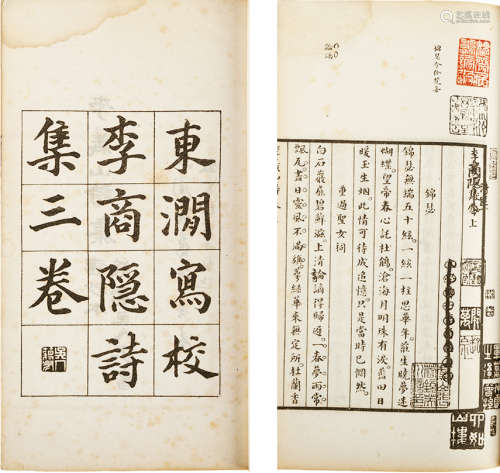 東澗寫校
李商隱詩
集三卷
李商隱集卷上
錦瑟
錦瑟無端五十絃一絃一柱思華年莊生曉夢迷
蝴蝶望帝春心託杜鵑滄海月明珠有淚藍田日
暖玉生烟此情可待成追憶只是當時已惘然
重過聖女祠
白石巖扉碧蘚滋上清論謫得歸遲一春夢雨常
飄瓦盡日靈風不滿旗萼綠華來無定所杜蘭香